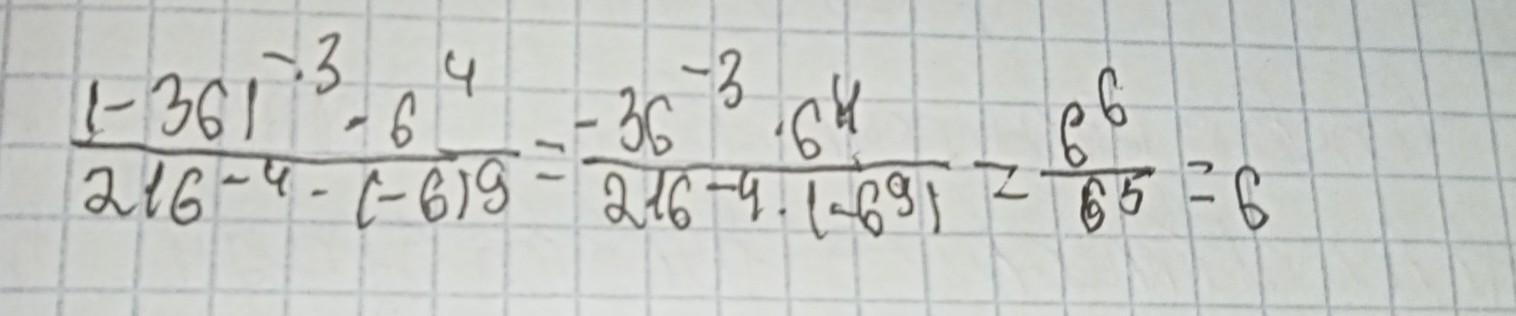 (-36)^{-3} · 6^4 / 216^{-4} · (-6)^9 = -36^{-3} · 6^4 / 216^{-4} · (-6^9) = 6^6 / 6^5 = 6